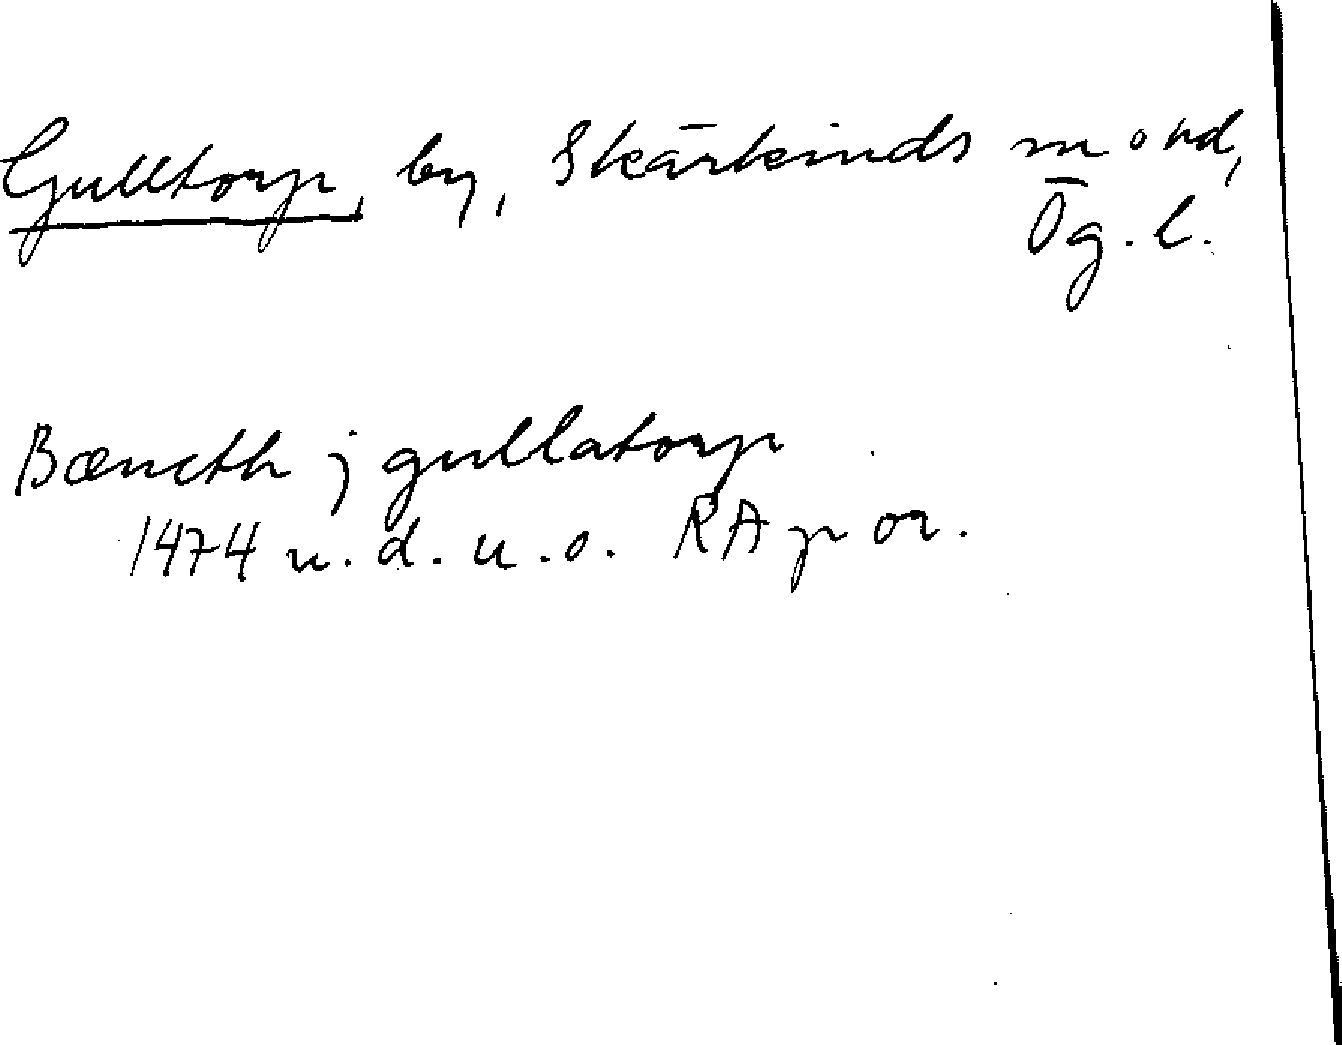 Gulltorp, by, Skärkinds sn o hd,
Ög. l.
Bæncth j gullatorp
1474 u. d. u. o. RAp or.